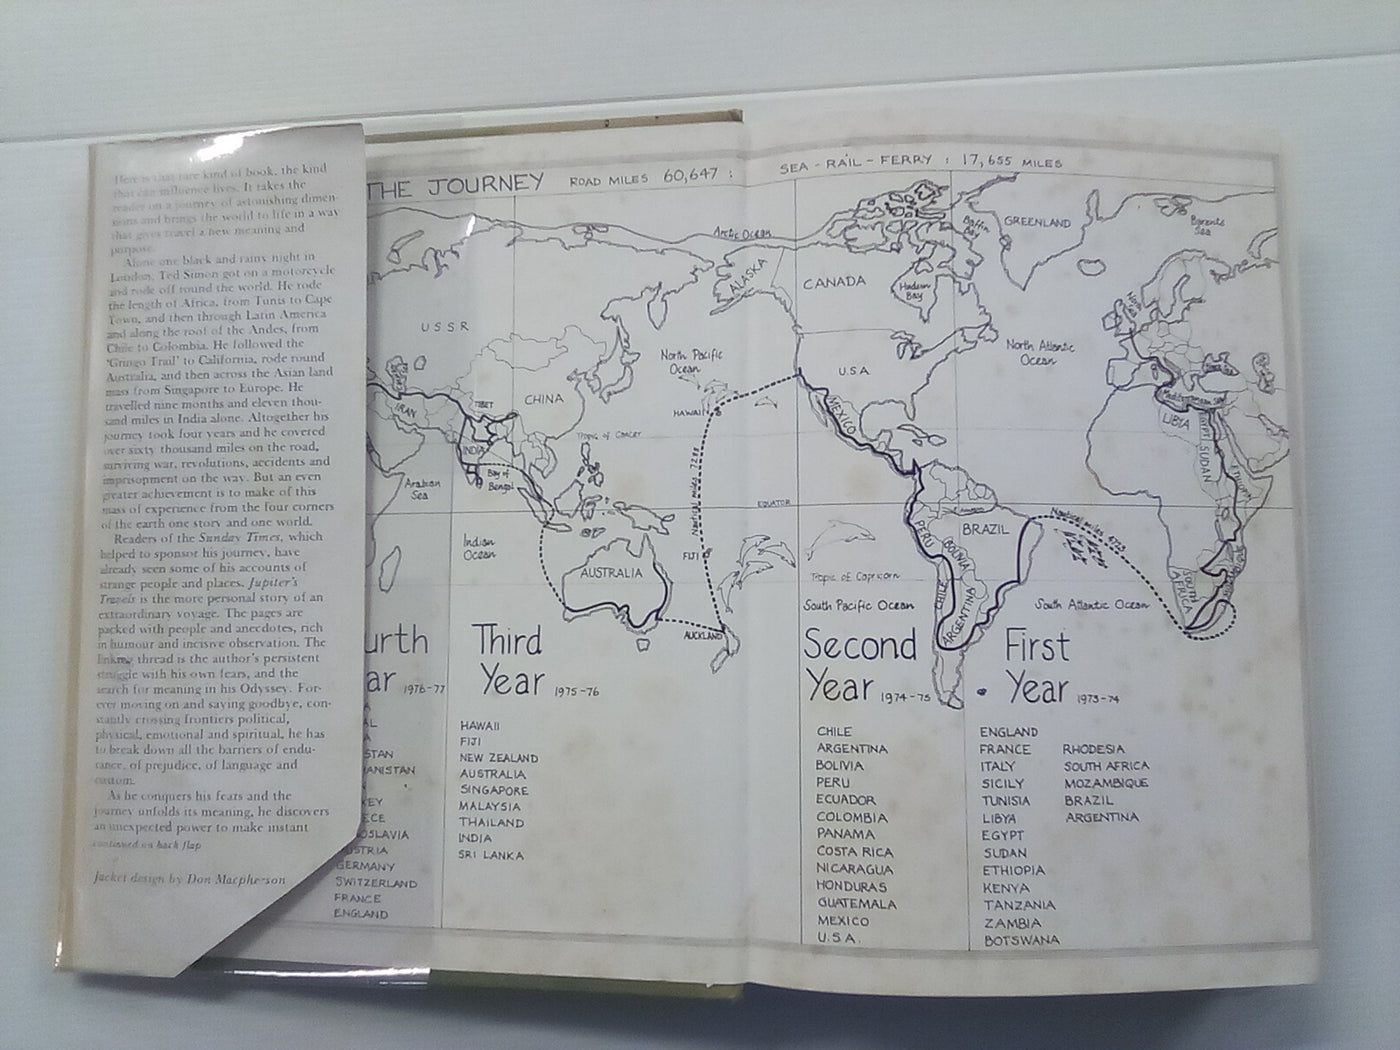 Here is that rare kind of book, the kind
that can influence lives. It takes the
reader on a journey of astonishing dimen-
sions and brings the world to life in a way
that gives travel a new meaning and
purpose.
Alone one black and rainy night in
London, Ted Simon got on a motorcycle
and rode off round the world. He rode
the length of Africa, from Tunis to Cape
Town, and then through Latin America
and along the roof of the Andes, from
Chile to Colombia. He followed the
'Gringo Trail' to California, rode round
Australia, and then across the Asian land
mass from Singapore to Europe. He
travelled nine months and eleven thou-
sand miles in India alone. Altogether his
journey took four years and he covered
over sixty thousand miles on the road,
surviving war, revolutions, accidents and
imprisonment on the way. But an even
greater achievement is to make of this
mass of experience from the four corners
of the earth one story and one world.
Readers of the Sunday Times, which
helped to sponsor his journey, have
already seen some of his accounts of
strange people and places. Jupiter's
Travels is the more personal story of an
extraordinary voyage. The pages are
packed with people and anecdotes, rich
in humour and incisive observation. The
linking thread is the author's persistent
struggle with his own fears, and the
search for meaning in his Odyssey. For-
ever moving on and saying goodbye, con-
stantly crossing frontiers political,
physical, emotional and spiritual, he has
to break down all the barriers of endu-
rance, of prejudice, of language and
custom.
As he conquers his fears and the
journey unfolds its meaning, he discovers
an unexpected power to make instant
continued on back flap
Jacket design by Don Macpherson
THE JOURNEY ROAD MILES 60,647 : SEA - RAIL - FERRY : 17,655 MILES
Arctic Ocean
ALASKA
CANADA
Baffin Bay
Hudson Bay
GREENLAND
Barents Sea
USSR
North Pacific Ocean
USA
North Atlantic Ocean
IRAN
TIBET
CHINA
INDIA
HAWAII
MEXICO
Tropic of Cancer
Mediterranean Sea
LIBYA
EGYPT
SUDAN
ETHIOPIA
Arabian Sea
Bay of Bengal
Nautical miles 7288
EQUATOR
Indian Ocean
FIJI
AUSTRALIA
AUCKLAND
PERU
BRAZIL
BOLIVIA
CHILE
ARGENTINA
Nautical miles 4725
Tropic of Capricorn
South Pacific Ocean
South Atlantic Ocean
SOUTH AFRICA
urth
ar 1976-77
A
AL
A
STAN
HANISTAN
N
KEY
ECE
OSLAVIA
USTRIA
GERMANY
SWITZERLAND
FRANCE
ENGLAND
Third
Year 1975-76
HAWAII
FIJI
NEW ZEALAND
AUSTRALIA
SINGAPORE
MALAYSIA
THAILAND
INDIA
SRI LANKA
Second
Year 1974-75
CHILE
ARGENTINA
BOLIVIA
PERU
ECUADOR
COLOMBIA
PANAMA
COSTA RICA
NICARAGUA
HONDURAS
GUATEMALA
MEXICO
U.S.A.
First
Year 1973-74
ENGLAND
FRANCE
ITALY
SICILY
TUNISIA
LIBYA
EGYPT
SUDAN
ETHIOPIA
KENYA
TANZANIA
ZAMBIA
BOTSWANA
RHODESIA
SOUTH AFRICA
MOZAMBIQUE
BRAZIL
ARGENTINA